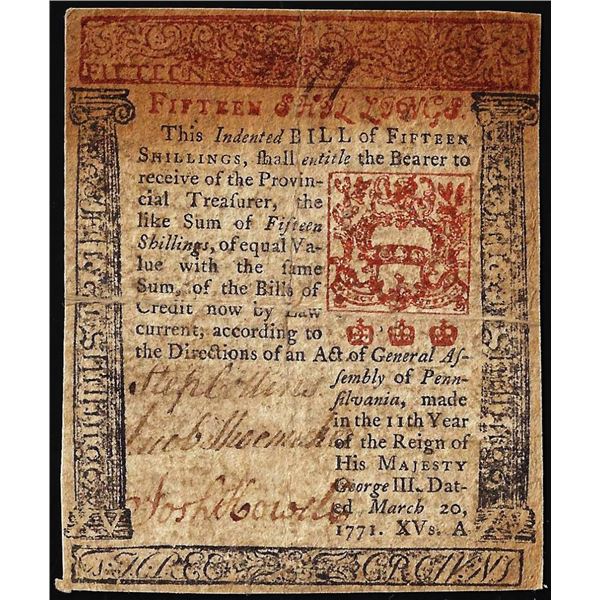 FIFTEEN
FIFTEEN SHILLINGS.
This Indented BILL of FIFTEEN
SHILLINGS, ſhall entitle the Bearer to
receive of the Provin-
cial Treaſurer, the
like Sum of Fifteen
Shillings, of equal Va-
lue with the ſame
Sum, of the Bills of
Credit now by Law
current; according to
the Directions of an Act of General Aſ-
ſembly of Penn-
ſilvania, made
in the 11th Year
of the Reign of
His MAJESTY
George III. Dat-
ed March 20,
1771. XVs. A
Step Collins
Jacob Shoemak
Josh Howell